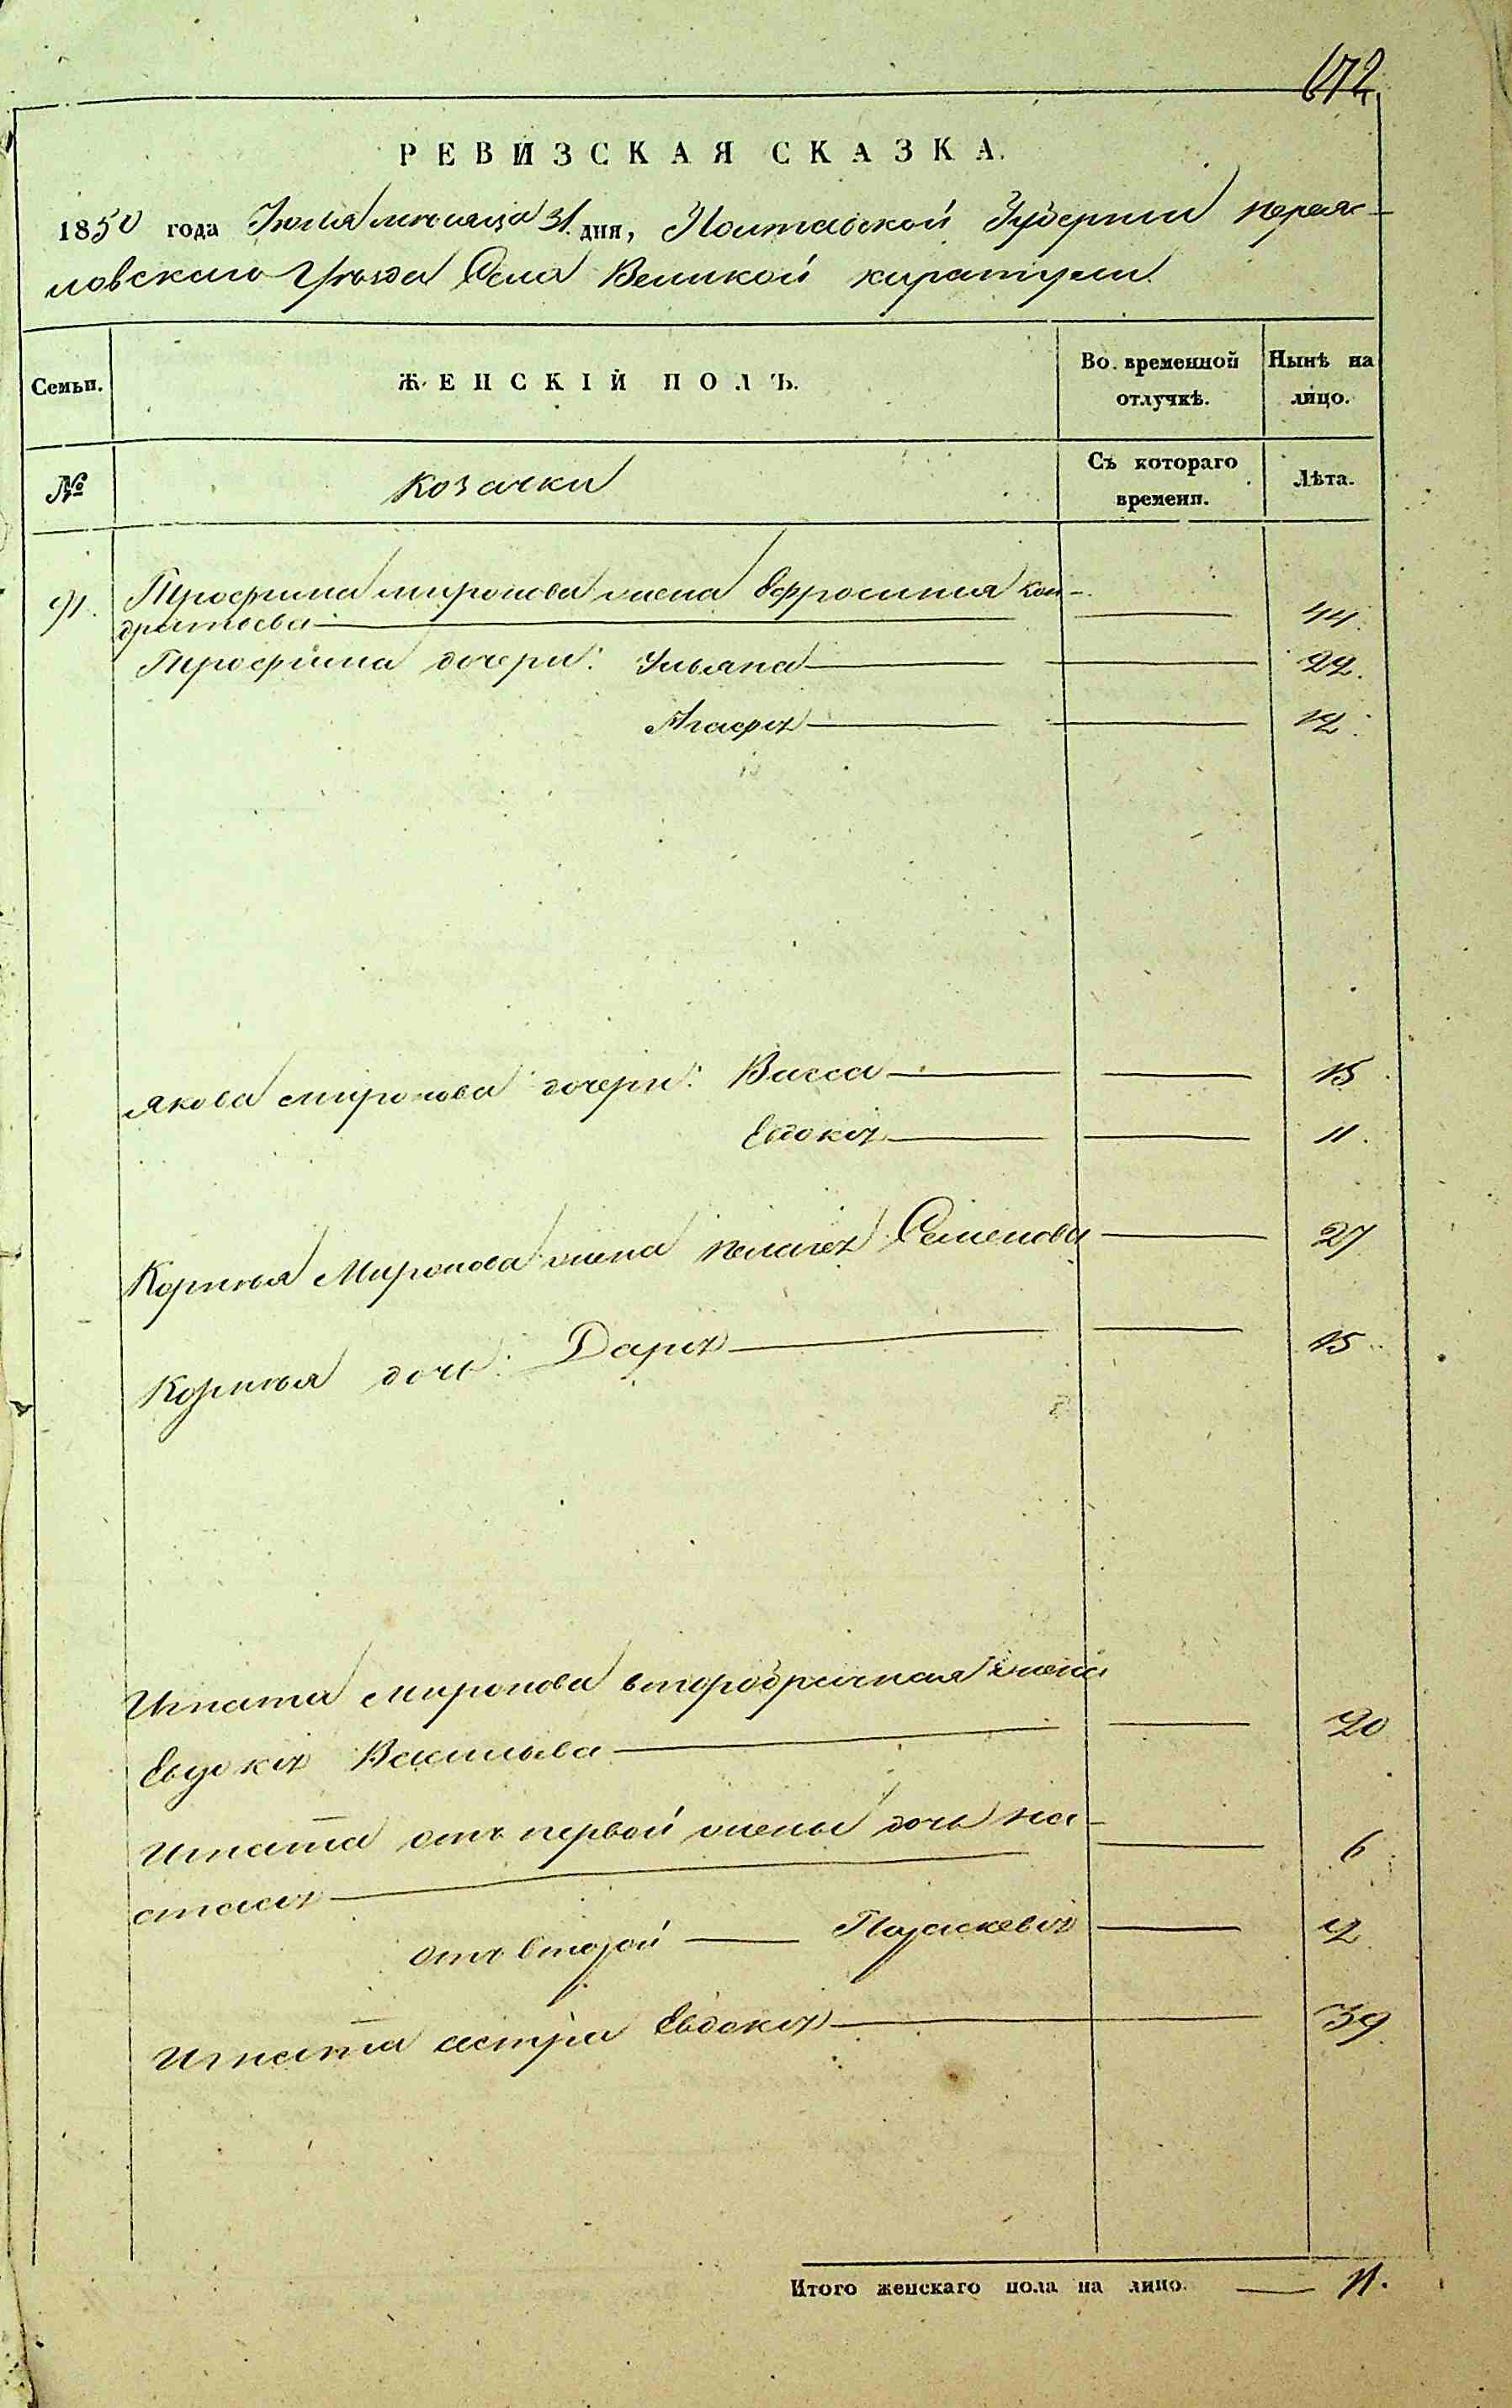 672
РЕВИЗСКАЯ СКАЗКА.
1850 года Июля месяца 31 дня, Полтавской Губернии перея-
ловскаго Уѣзда Села Великой каратули
Семьи.
ЖЕНСКІЙ ПОЛЪ.
Во временной отлучкѣ.
Нынѣ на лицо.
№
козачки
Съ котораго времени.
Лѣта.
91. Трофима миронова жена Ефросинія кон-
дратьева 44.
Трофима дочери: Ульяна 22.
Агафія 12.
якова миронова дочери: Васса 15
Евдокія 11.
Корнѣя Миронова жена пелагея Семенова 27
Корнѣя дочь: Дарія 15
Игната миронова второбрачная жена
Евдокія Васильева 20
Игната отъ первой жены дочь На-
стасія 6
отъ второй Параскевія 2
Игната сестра Евдокія 39
Итого женскаго пола на лицо. 11.